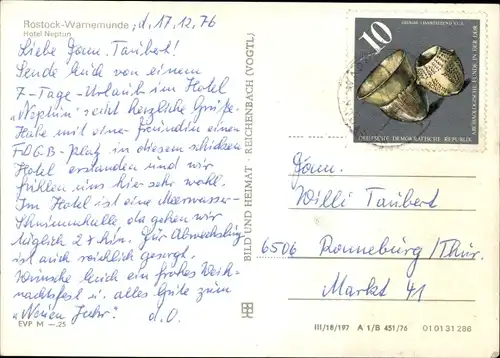 Rostock-Warnemünde, d. 17.12.76
Hotel Neptun
Liebe Fam. Taubert!
Sende Euch von einem
7-Tage-Urlaub im Hotel
"Neptun" recht herzliche Grüße.
Habe mit einer Freundin einen
FDGB-Platz in diesem schicken
Hotel erstanden und wir
fühlen uns hier sehr wohl.
Im Hotel ist eine Meerwasser-
Schwimmhalle da gehen wir
täglich 2 x hin. Für Abwechslung
ist auch reichlich gesorgt.
Wünsche Euch ein frohes Weih-
nachtsfest u. alles Gute zum
"Neuen Jahr". d. O.
EVP M –.25
BILD UND HEIMAT · REICHENBACH (VOGTL)
10
ARCHÄOLOGISCHE FUNDE IN DER DDR
DEUTSCHE DEMOKRATISCHE REPUBLIK
Fam.
Willi Taubert
6506 Ronneburg/Thür.
Markt 41
III/18/197 A 1/B 451/76 01 01 31 286